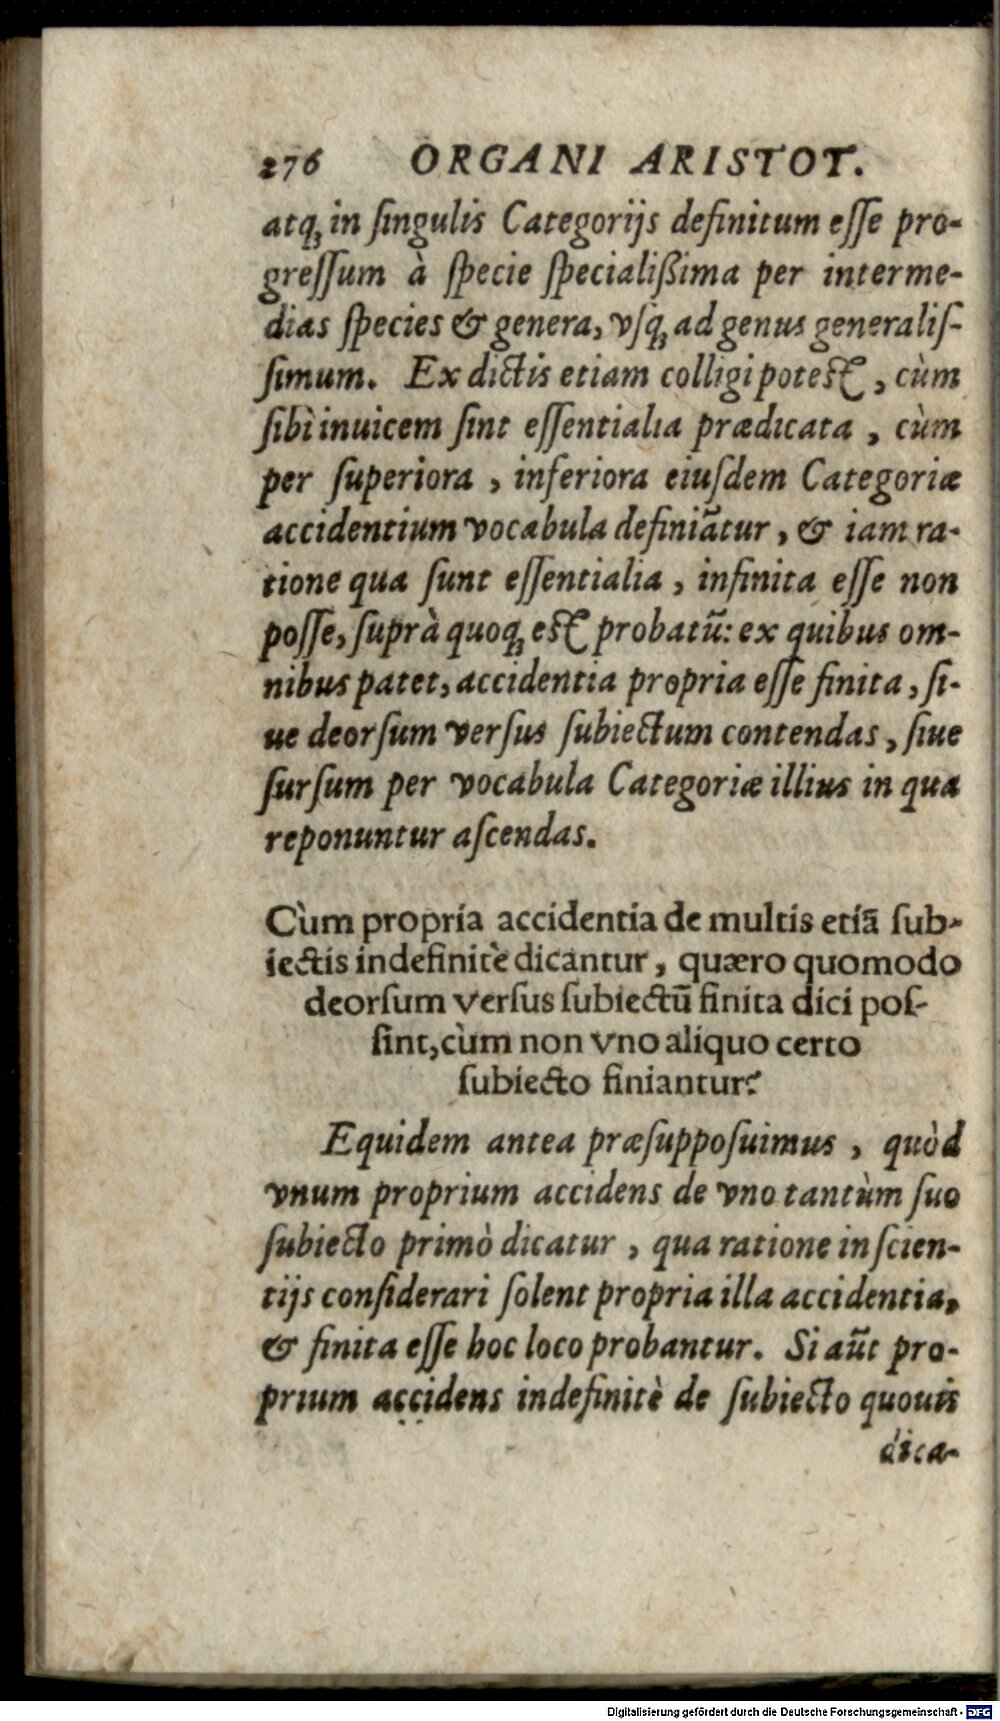 276 ORGANI ARISTOT.
atq́; in ſingulis Categorijs definitum eſſe pro-
greſſum à ſpecie ſpecialißima per interme-
dias ſpecies & genera, vſq; ad genus generaliſ-
ſimum. Ex dictis etiam colligi potest, cùm
ſibi inuicem ſint eſſentialia prædicata, cùm
per ſuperiora, inferiora eiuſdem Categoriæ
accidentium vocabula definiãtur, & iam ra-
tione qua ſunt eſſentialia, infinita eſſe non
poſſe, ſuprà quoq; est probatũ: ex quibus om-
nibus patet, accidentia propria eſſe finita, ſi-
ue deorſum verſus ſubiectum contendas, ſiue
ſurſum per vocabula Categoriæ illius in qua
reponuntur aſcendas.
Cùm propria accidentia de multis etiã ſub-
iectis indefinitè dicantur, quæro quomodo
deorſum verſus ſubiectũ finita dici poſ-
ſint, cùm non vno aliquo certo
ſubiecto finiantur?
Equidem antea præſuppoſuimus, quòd
vnum proprium accidens de vno tantùm ſuo
ſubiecto primò dicatur, qua ratione in ſcien-
tijs conſiderari ſolent propria illa accidentia,
& finita eſſe hoc loco probantur. Si aũt pro-
prium accidens indefinitè de ſubiecto quouis
dica-
Digitalisierung gefördert durch die Deutsche Forschungsgemeinschaft - DFG